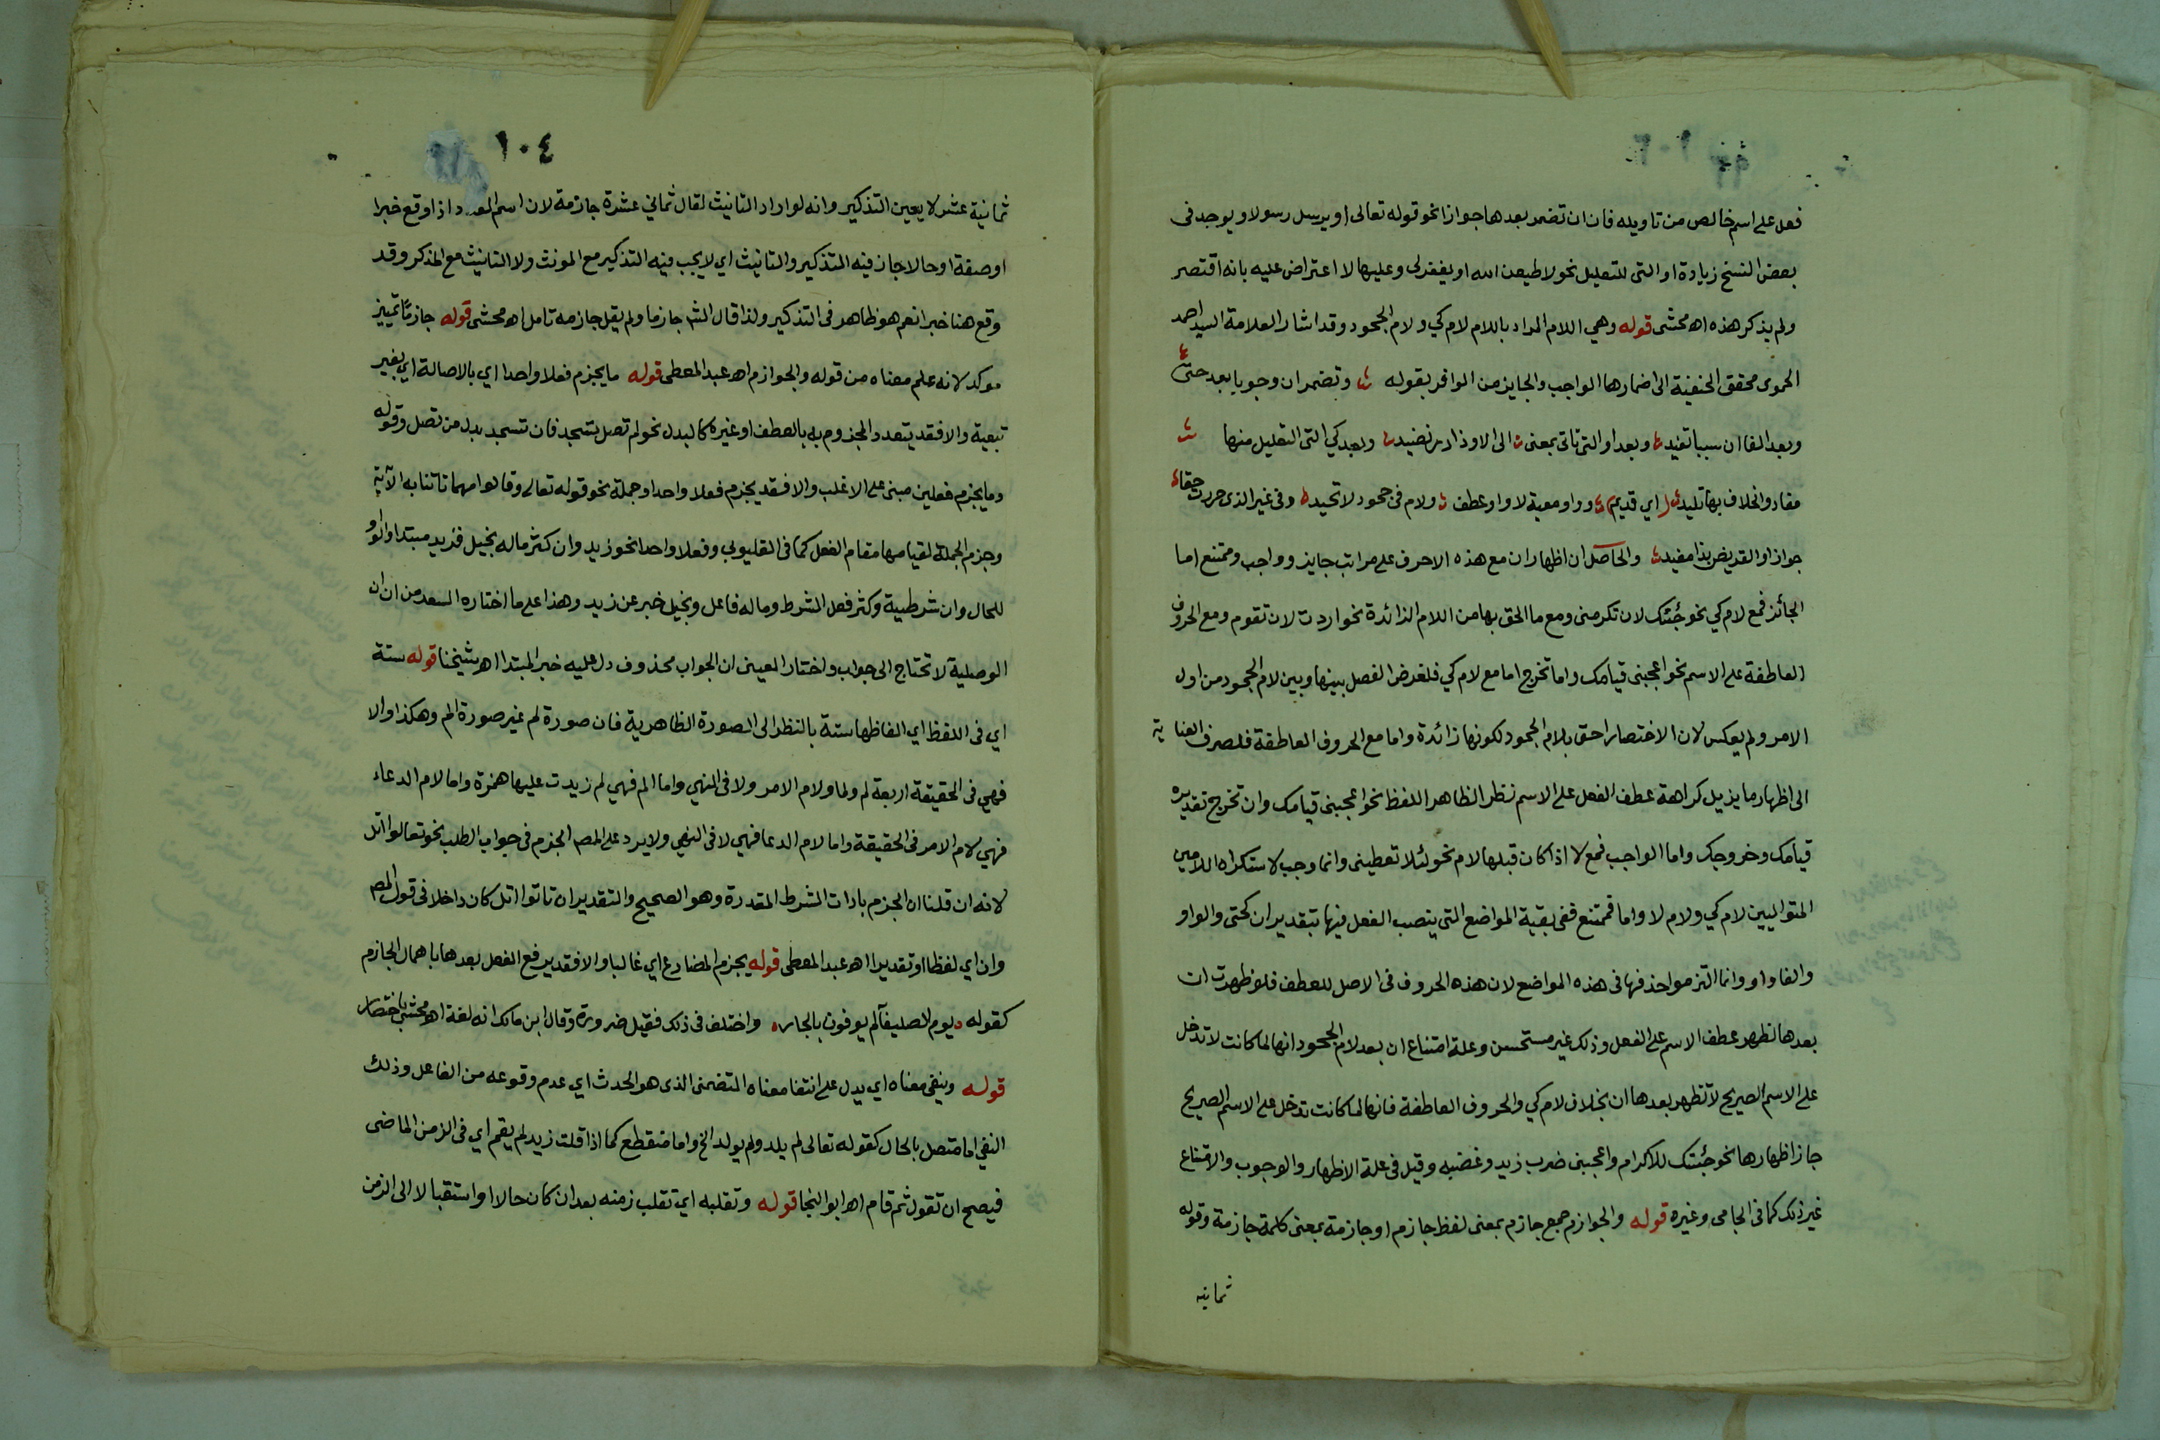 ١٠٣
فعل على اسم خالص من تاويله فان ان تضمر بعدها جوازا نحو قوله تعالى او يرسل رسولا ويوجد فى
بعض النسخ زيادة او التى للتعليل نحو لاطيعن الله او يغفرلى وعليها لا اعتراض عليه بانه اقتصر
ولم يذكر هذه اه محشى قوله وهي اللام المراد باللام لام كي ولام الجحود وقد اشار العلامة السيد احمد
الحموى محقق الحنفية الى اضمارها الواجب والجايز من الوافر بقوله وتضمر ان وجوبا بعد حتى
وبعد الفا ان سببا تفيد وبعد او التى تاتى بمعنى الى الا وذا در نضيد وبعد كي التى التعليل منها
مفاد والخلاف بها تليد اي قديم وواو معية لا واو عطف ولام فى جحود لا تحيد وفى غير الذى حررت حقا
جوازا والقريض بذا مفيد والحاصل ان اظهار ان مع هذه الاحرف على مراتب جايز وواجب وممتنع اما
الجائز فمع لام كي نحو جئتك لان تكرمنى ومع ما الحق بها من اللام الزائدة نحو اردت لان تقوم ومع الحروف
العاطفة على الاسم نحو اعجبنى قيامك واما تخرج اما مع لام كي فلغرض الفصل بينها وبين لام الجحود من اول
الامر ولم يعكس لان الاختصار احق بلام الجحود لكونها زائدة واما مع الحروف العاطفة فلصرف العناية
الى اظهار ما يزيل كراهة عطف الفعل على الاسم نظر الظاهر اللفظ نحو اعجبنى قيامك وان تخرج تقديره
قيامك وخروجك واما الواجب فمع لا اذا كان قبلها لام نحو لئلا تعطينى وانما وجب لاستكراه اللامين
المتواليين لام كي ولام لا واما فممتنع ففى بقية المواضع التى ينصب الفعل فيها بتقدير ان كحتى والواو
والفا واو وانما التزموا حذفها فى هذه المواضع لان هذه الحروف فى الاصل للعطف فلو ظهرت ان
بعدها لظهر عطف الاسم على الفعل وذلك غير مستحسن وعلة امتناع ان بعد لام الجحود انها لما كانت لا تدخل
على الاسم الصريح لا تظهر بعدها ان بخلاف لام كي والحروف العاطفة فانها لما كانت تدخل على الاسم الصريح
جاز اظهارها نحو جئتك للاكرام واعجبنى ضرب زيد وغضبه وقيل فى علة الاظهار والوجوب والامتناع
غير ذلك كما فى الجامى وغيره قوله والجوازم جمع جازم بمعنى لفظ جازم او جازمة بمعنى كلمة جازمة وقوله
ثمانية
١٠٤
ثمانية عشر لا يعين التذكير وانه لو اراد التانيث لقال ثمانى عشرة جازمة لان اسم العدد اذا وقع خبرا
او صفة او حالا جاز فيه التذكير والتانيث اي لا يجب فيه التذكير مع المونث ولا التانيث مع المذكر وقد
وقع هنا خبرا نعم هو ظاهر فى التذكير ولذا قال الش جازما ولم يقل جازمه تامل اه محشى قوله جازما تمييز
موكد لانه علم معناه من قوله والجوازم اه عبد المعطى قوله ما يجزم فعلا واحدا اي بالاصالة اي بغير
تبعية والا فقد يتعدد المجزوم به بالعطف او غيره كالبدل نحو لم تصل تسجد فان تسجد بدل من تصل وقوله
وما يجزم فعلين مبنى على الاغلب والا فقد يجزم فعلا واحدا وجملة نحو قوله تعالى وقالوا مهما تاتنا به الآية
وجزم الجملة لقيامها مقام الفعل كما فى القليوبى وفعلا واحدا نحو زيد وان كثر ماله بخيل فزيد مبتدا والواو
للحال وان شرطية وكثر فعل الشرط وماله فاعل وبخيل خبر عن زيد وهذا على ما اختاره السعد من ان ان
الوصلية لا تحتاج الى جواب واختار العينى ان الجواب محذوف دل عليه خبر المبتدا اه شيخنا قوله ستة
اي فى اللفظ اي الفاظها ستة بالنظر الى الصورة الظاهرية فان صورة لم غير صورة الم وهكذا والا
فهي فى الحقيقة اربعة لم ولما ولام الامر ولا فى النهي واما الم فهي لم زيدت عليها همزة واما لام الدعاء
فهي لام الامر فى الحقيقة واما لام الدعا فهي لا فى النهي ولا يرد على المص الجزم فى جواب الطلب نحو تعالوا اتل
لانه ان قلنا ان الجزم بادات الشرط المقدرة وهو الصحيح والتقدير ان تاتوا اتل كان داخلا فى قول المص
وان اي لفظا او تقديرا اه عبد المعطى قوله يجزم المضارع اي غالبا والا فقد يرفع الفعل بعدها باهمال الجازم
كقوله يوم الصليفآ لم يوفون بالجار واختلف فى ذلك فقيل ضرورة وقال ابن مالك انه لغة اه محشى باختصار
قوله وينفى معناه اي يدل على انتفا معناه المتضمنى الذى هو الحدث اي عدم وقوعه من الفاعل وذلك
النفي اما متصل بالحال كقوله تعالى لم يلد ولم يولد الخ واما منقطع كما اذا قلت زيد لم يقم اي فى الزمن الماضى
فيصح ان تقول ثم قام اه ابو النجا قوله وتقلبه اي تقلب زمنه بعد ان كان حالا او استقبالا الى الزمن